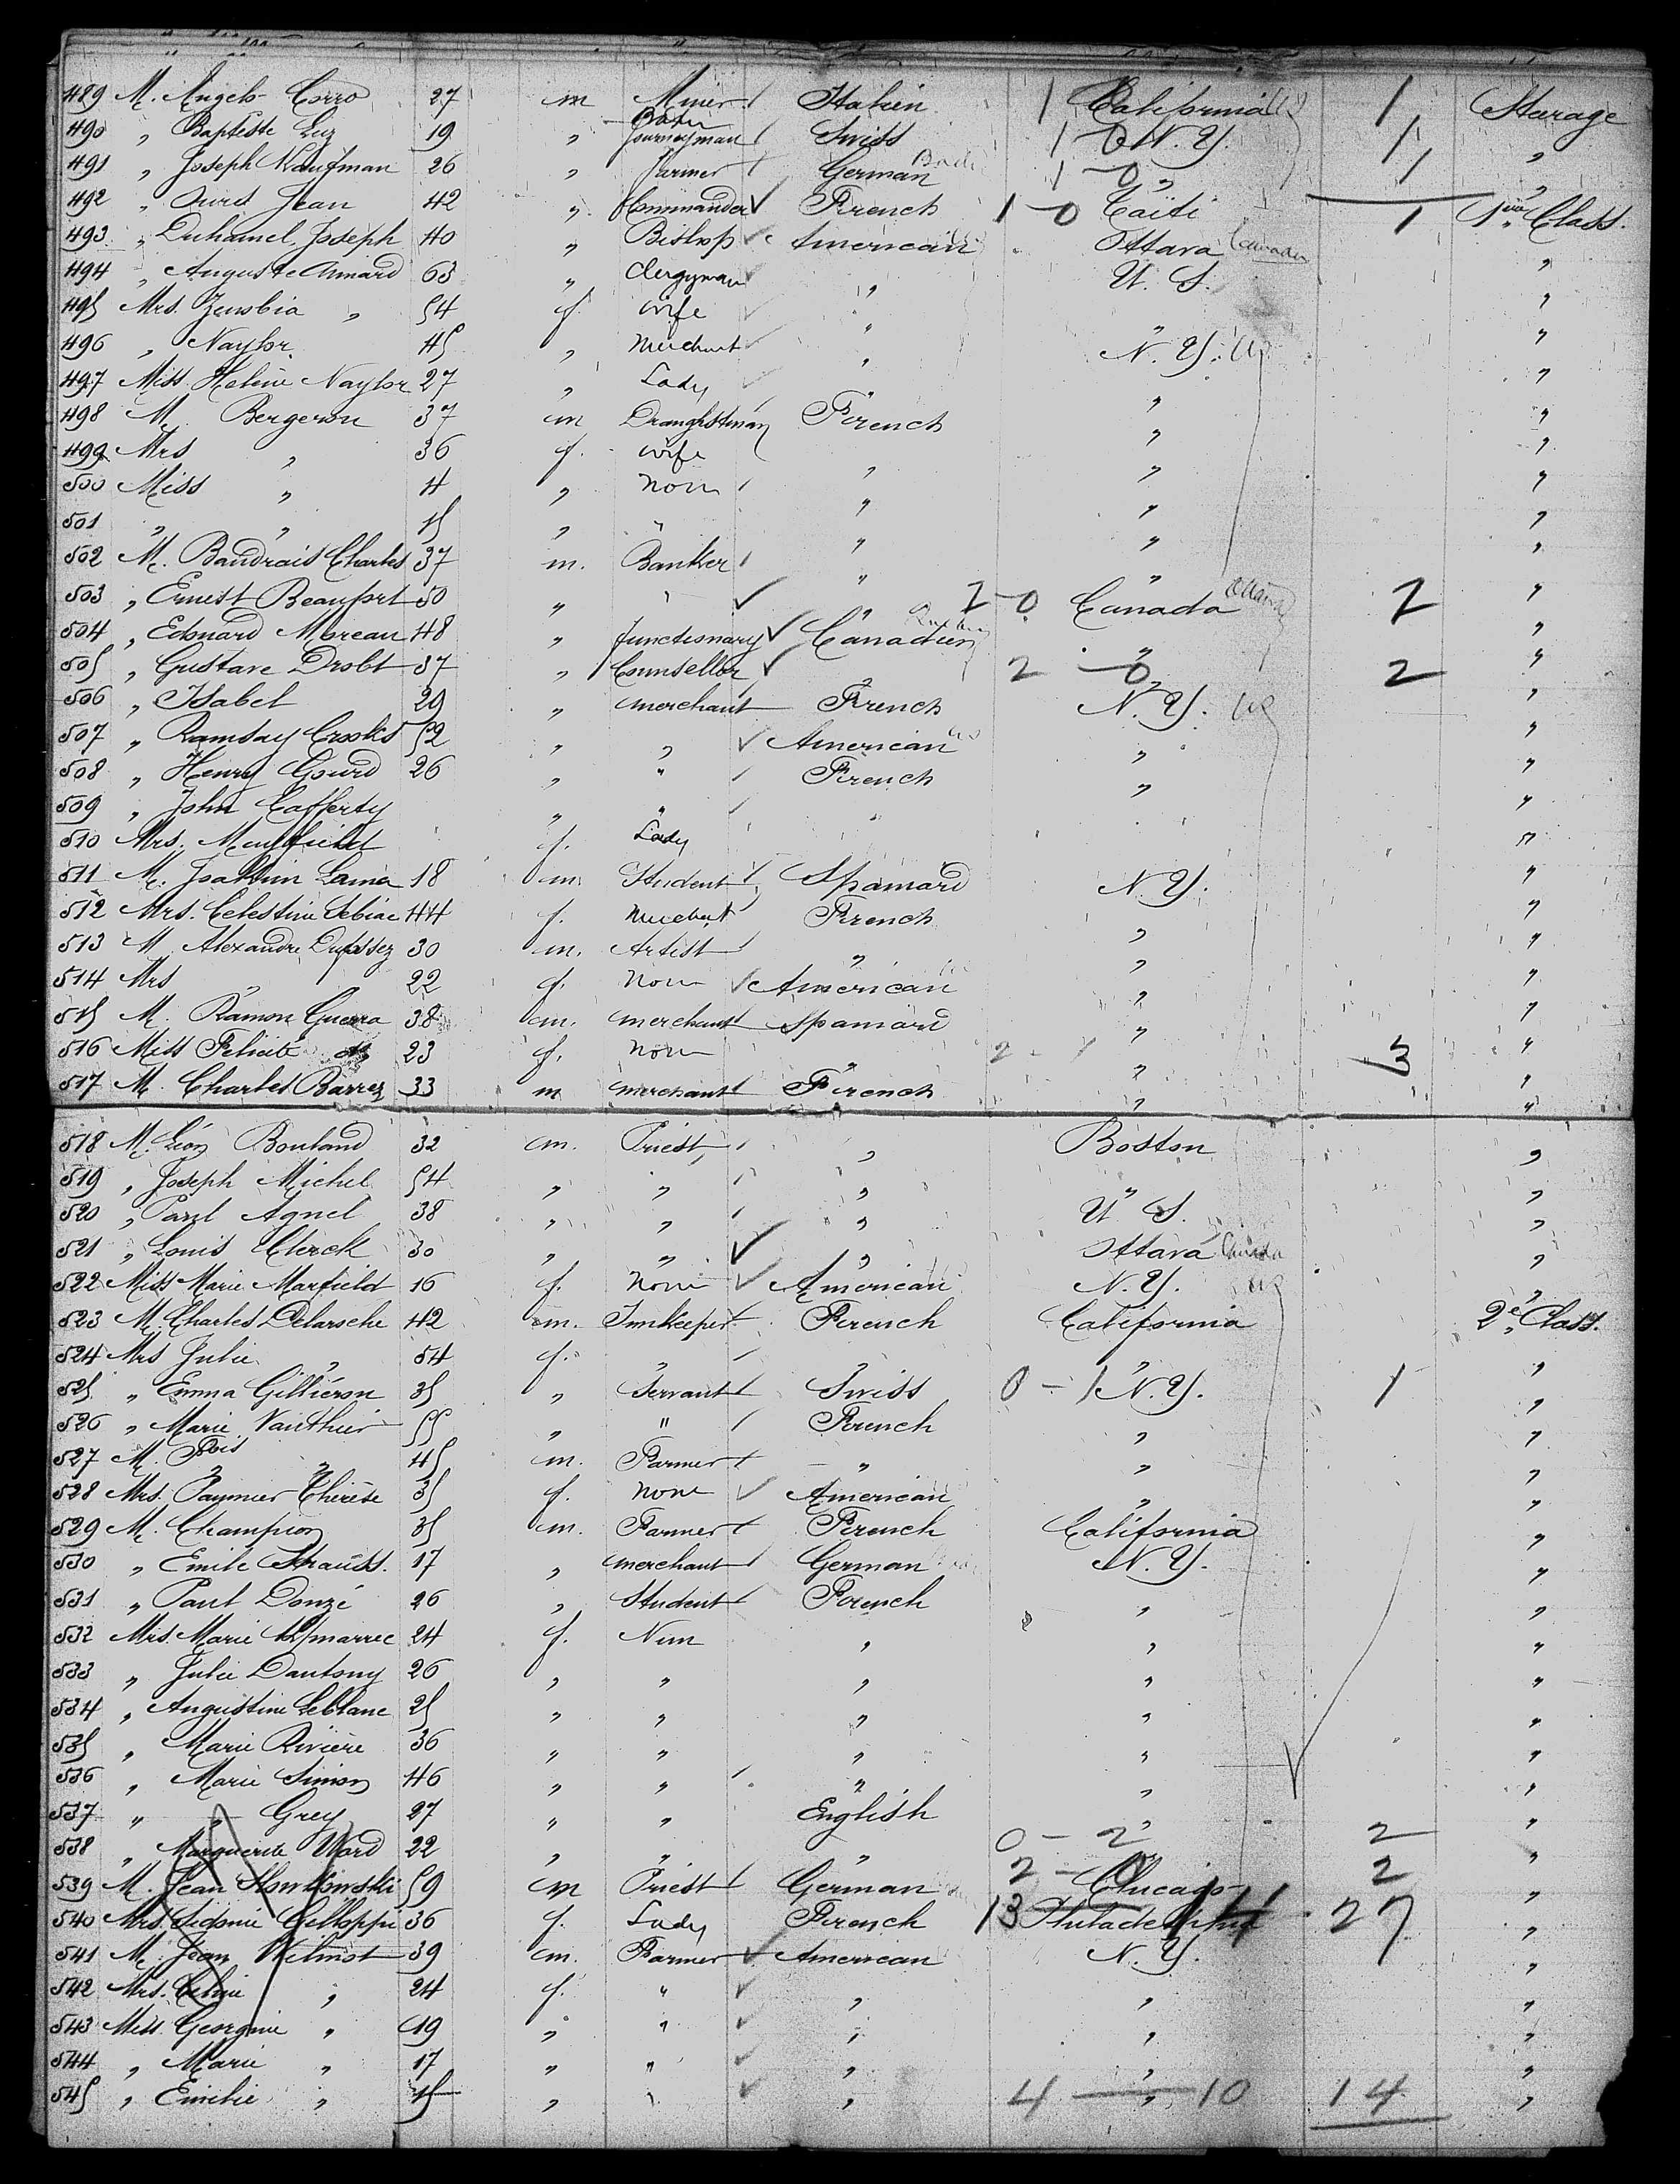 489 M. Angelo Corro 27 m Miner Italien 1 California US 1 Stearage
490 " Baptiste Luz 19 " Baker Journeyman Swiss 1-0 N. Y. 1 "
491 " Joseph Kaufman 26 " Farmer German 1-0 " 1 "
492 " Jean 42 " Commander French 1-0 Taïti 1 1ère Class.
493 " Duhamel Joseph 40 " Bishop American Ottava Canada "
494 " Auguste Aimard 63 " Clergyman " U. S. "
495 Mrs. Zenobia " 54 f. wife " "
496 " Naylor 45 " Merchant " N. Y. US "
497 Miss Helene Naylor 27 " Lady " " "
498 M. Bergeron 37 m Draughtsman French " "
499 Mrs " 36 f. wife " " "
500 Miss " 4 " None " " "
501 " " 15 " " " " "
502 M. Baudrais Charles 37 m. Banker " " "
503 " Ernest Beaufort 50 " " " 2-0 Canada Ottawa 2 "
504 " Edouard Moreau 48 " functionary Canadien " "
505 " Gustave Drolet 37 " Counsellor " 2-0 " 2 "
506 " Isabel 29 " merchant French N. Y. US "
507 " Ramsay Crooks 52 " " American US " "
508 " Henry Gourd 26 " " French " "
509 " John Cafferty " " "
510 Mrs. f. Lady "
511 M. Joakim Lama 18 m. Student Spaniard N. Y. "
512 Mrs. Celestine Sebiac 44 f. Merchant French " "
513 M Alexandre 30 m. Artist " " "
514 Mrs " 22 f. None American " "
515 M. Ramon Guerra 38 m. merchant Spaniard " "
516 Miss Felicite 23 f. None " 2-1 " 3 "
517 M. Charles Barrez 33 m merchant French " "
518 M. Léon Bouland 32 m. Priest " Boston "
519 " Joseph Michel 54 " " " " "
520 " Paul Agnel 38 " " " U S. "
521 " Louis Clerck 30 " " " Ottava Canada "
522 Miss Marie Marfield 16 f. None American N. Y. US "
523 M. Charles Delaroche 42 m. Innkeeper French California 2e Class.
524 Mrs Julie " 54 f. " " " "
525 " Emma Gilliéron 35 " Servant Swiss 0-1 N. Y. 1 "
526 " Marie Vauthier 55 " " French " "
527 M. Fois " 45 m. Farmer " " "
528 Mrs. Paumier Thérèse 35 f. None American " "
529 M. Champion 35 m. Farmer French California "
530 " Emile Strauss. 17 " merchant German N. Y. "
531 " Paul Donzé 26 " Student French " "
532 Mrs. Marie 24 f. Nun " " "
533 " Julie Dantony 26 " " " " "
534 " Augustine Leblanc 25 " " " " "
535 " Marie Rivière 36 " " " " "
536 " Marie Simon 46 " " " " "
537 " " Grey 27 " " English " "
538 " Marguerite Ward 22 " " " 0-2 " 2 "
539 M. Jean 59 m Priest German 2-0 Chicago 2 "
540 Mrs. Sidonie 36 f. Lady French 13 Philadelphia 14 27 "
541 M. Jean Wilmot 39 m. Farmer American N. Y. "
542 Mrs. Celine " 24 f. " " " "
543 Miss Georgine " 19 " " " " "
544 " Marie " 17 " " " " "
545 " Emilie " 15 " " " 4 - 10 " 14 "